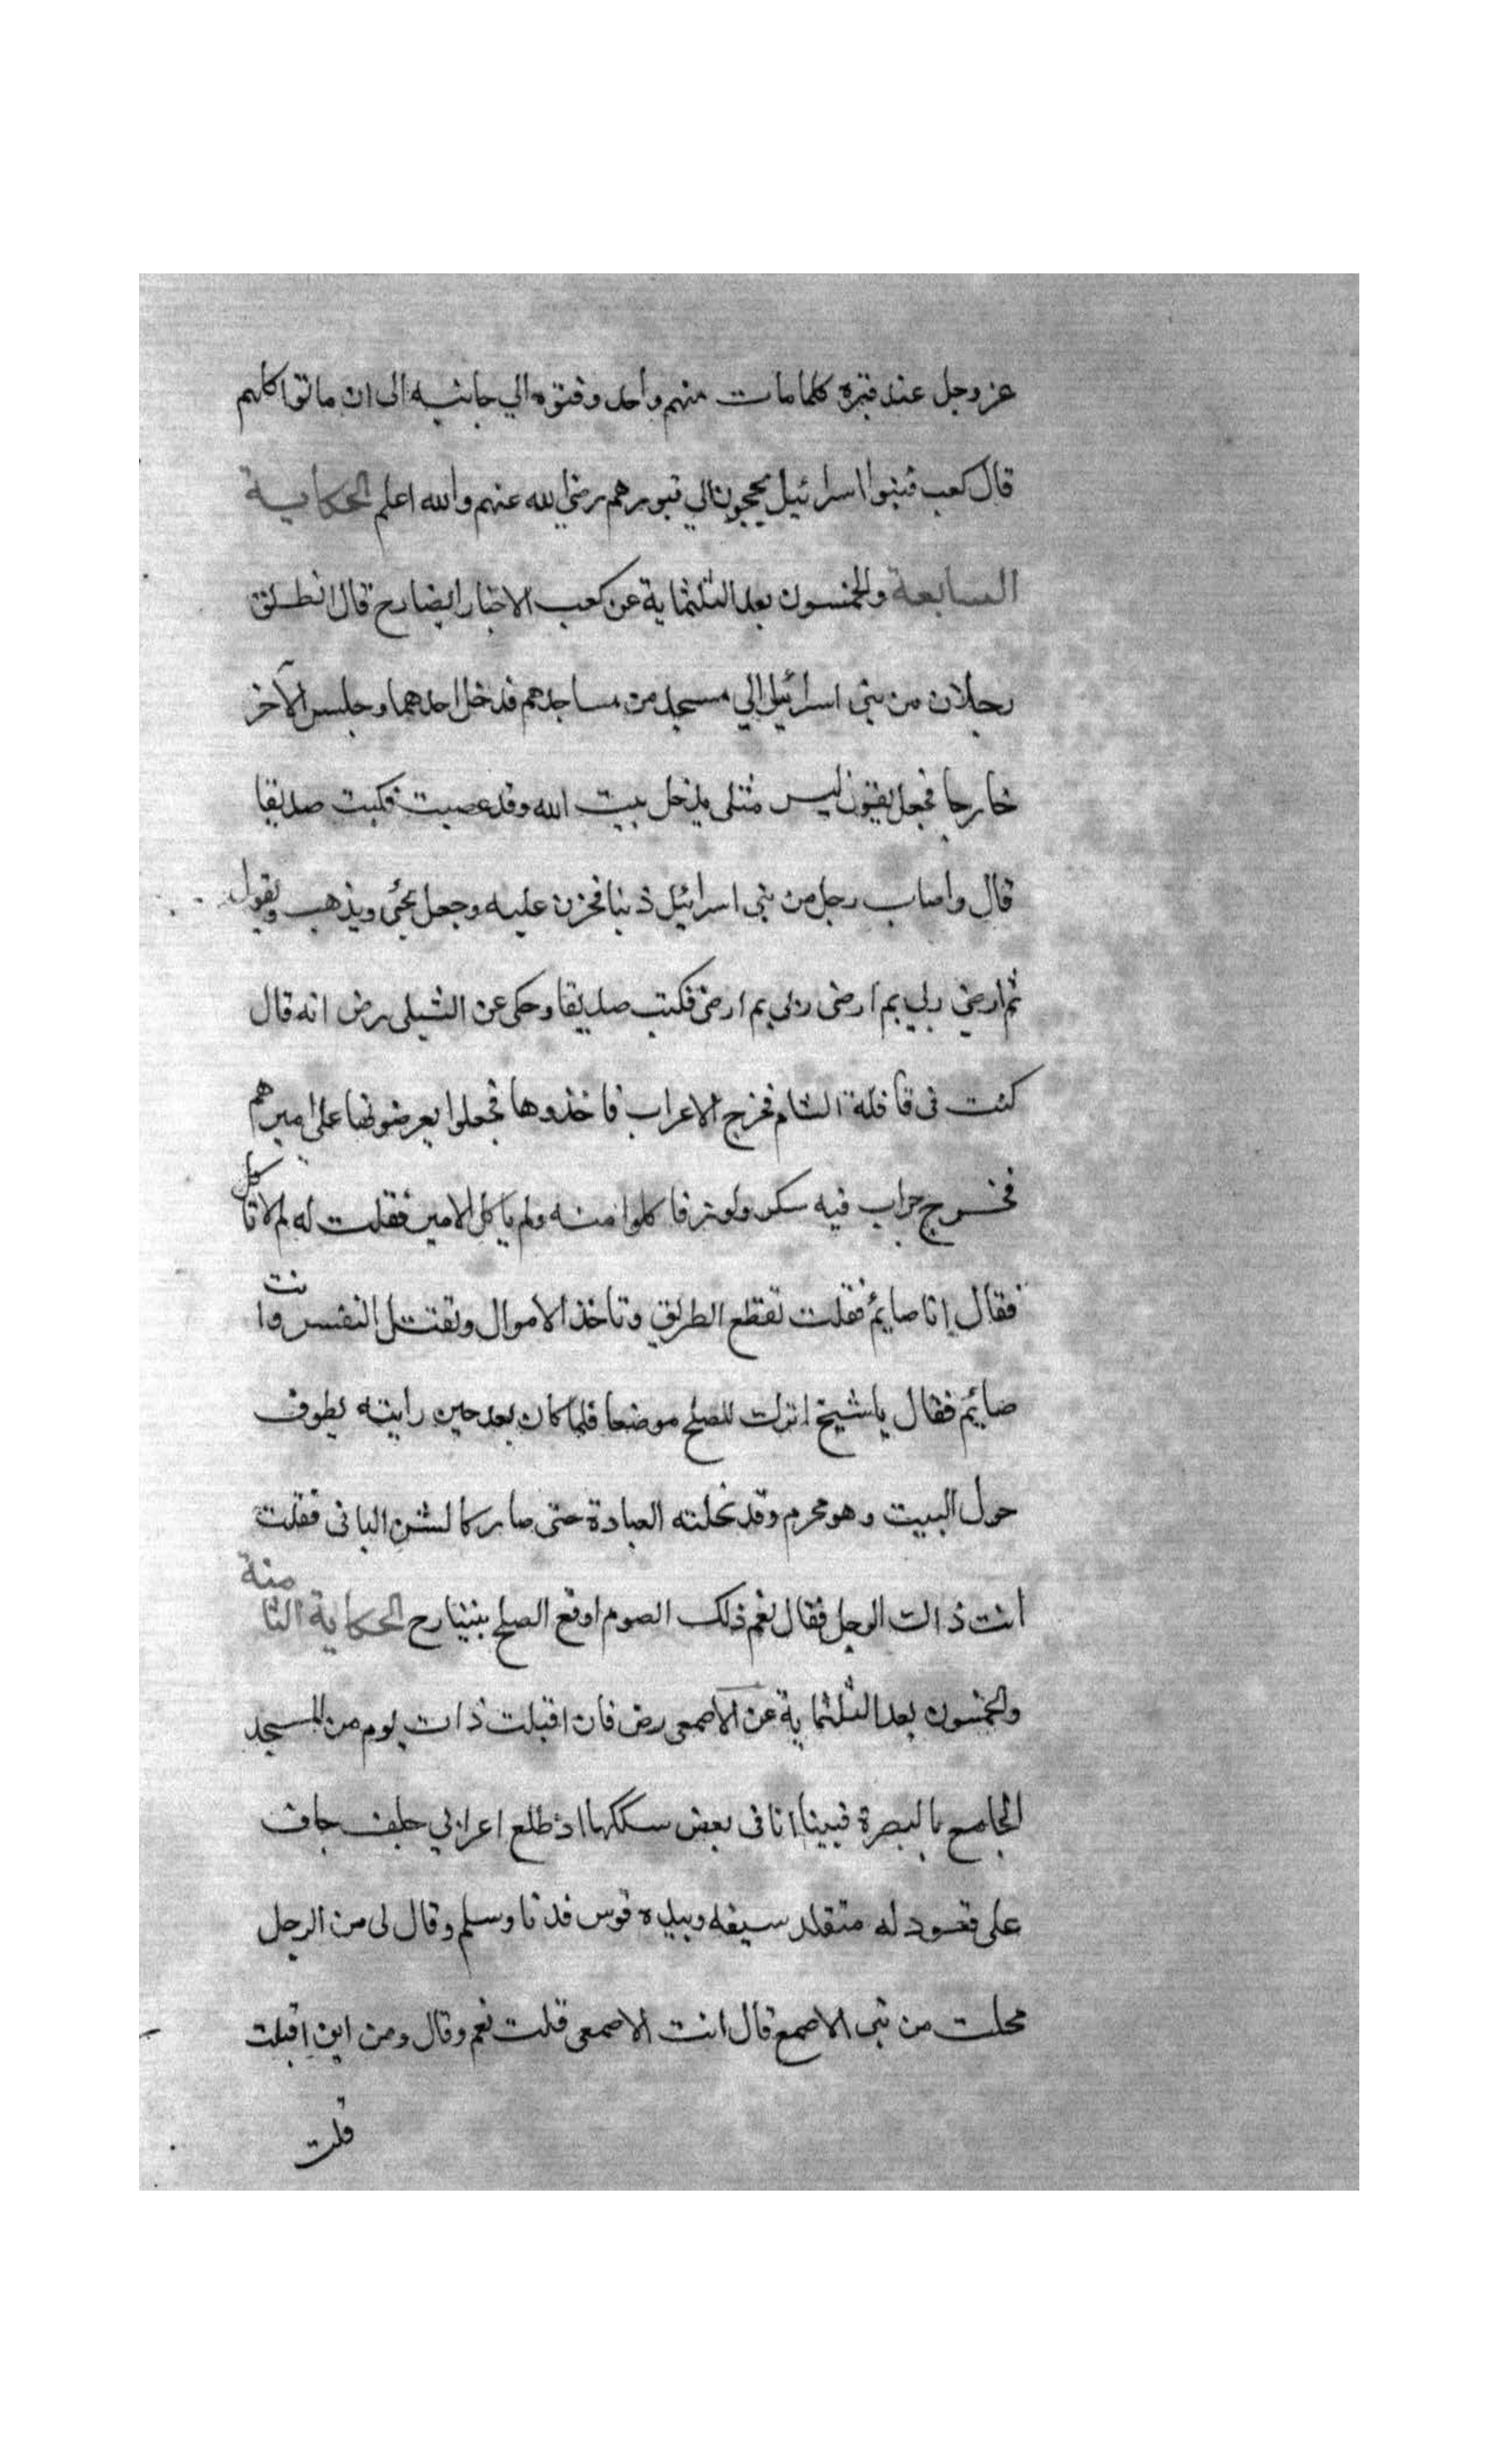 عز وجل عند قبره كلما مات منهم واحد دفنوه الي جانبه الى ان ماتوا كلهم
قال كعب فبنوا اسرائيل يحجون الي قبورهم رضي الله عنهم والله اعلم الحكاية
السابعة والخمسون بعد الثلثماية عن كعب الاحبار ايضا رح قال انطلق
رجلان من بني اسرائيل الي مسجد من مساجدهم فدخل احدهما وجلس الآخر
خارجا فجعل يقول ليس مثلى يدخل بيت الله وقد عصيت فكتب صديقا
قال واصاب رجل من بني اسرائيل ذنبا فحزن عليه وجعل يجئ ويذهب ويقول
بم ارضي ربي بم ارضى ربي بم ارضى فكتب صديقا وحكى عن الشبلى رض انه قال
كنت في قافلة الشام فخرج الاعراب فاخذوها فجعلوا يعرضونها على اميرهم
فخرج جراب فيه سكر ولوز فاكلوا منه ولم ياكل الامير فقلت له لم لا تاكل
فقال انا صايم فقلت تقطع الطريق وتاخذ الاموال وتقتل النفس وانت
صائم فقال يا شيخ اترك للصلح موضعا فلما كان بعد حين رايته يطوف
حول البيت وهو محرم وقد نحلته العبادة حتى صار كالشن البالى فقلت
انت ذالك الرجل فقال نعم ذلك الصوم اوقع الصلح بيننا رح الحكاية الثامنة
والخمسون بعد الثلثماية عن الاصمعى رض قال اقبلت ذات يوم من المسجد
الجامع بالبصرة فبينا انا فى بعض سككها اذ طلع اعرابي جلف جاف
على قعود له متقلد سيفه وبيده قوس فدنا وسلم وقال لى من الرجل
فقلت من بنى الاصمع قال انت الاصمعى قلت نعم وقال ومن اين اقبلت
قلت